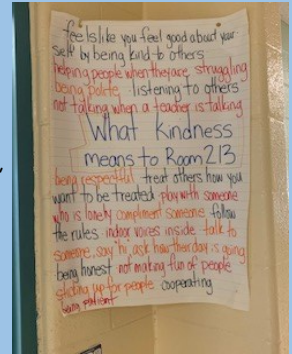 feels like you feel good about your-
self by being kind to others
helping people when they are struggling
being polite listening to others
not talking when a teacher is talking
What Kindness
means to Room 213
being respectful treat others how you
want to be treated play with someone
who is lonely compliment someone follow
the rules indoor voices inside talk to
someone, say hi, ask how their day is going
being honest not making fun of people
sticking up for people cooperating
being patient